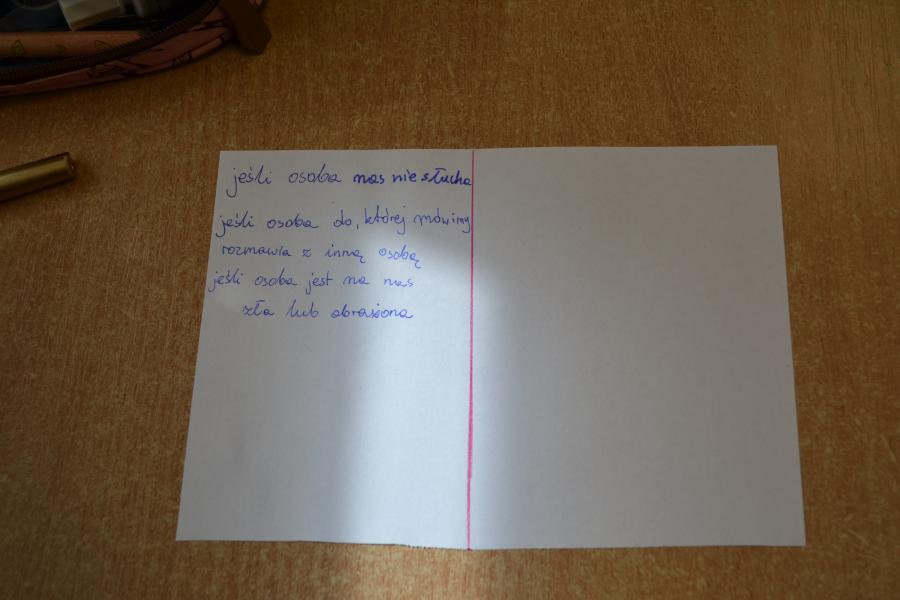 jeśli osoba nas nie słucha
jeśli osoba do, której mówimy
rozmawia z inną osobą
jeśli osoba jest na nas
zła lub obrażona